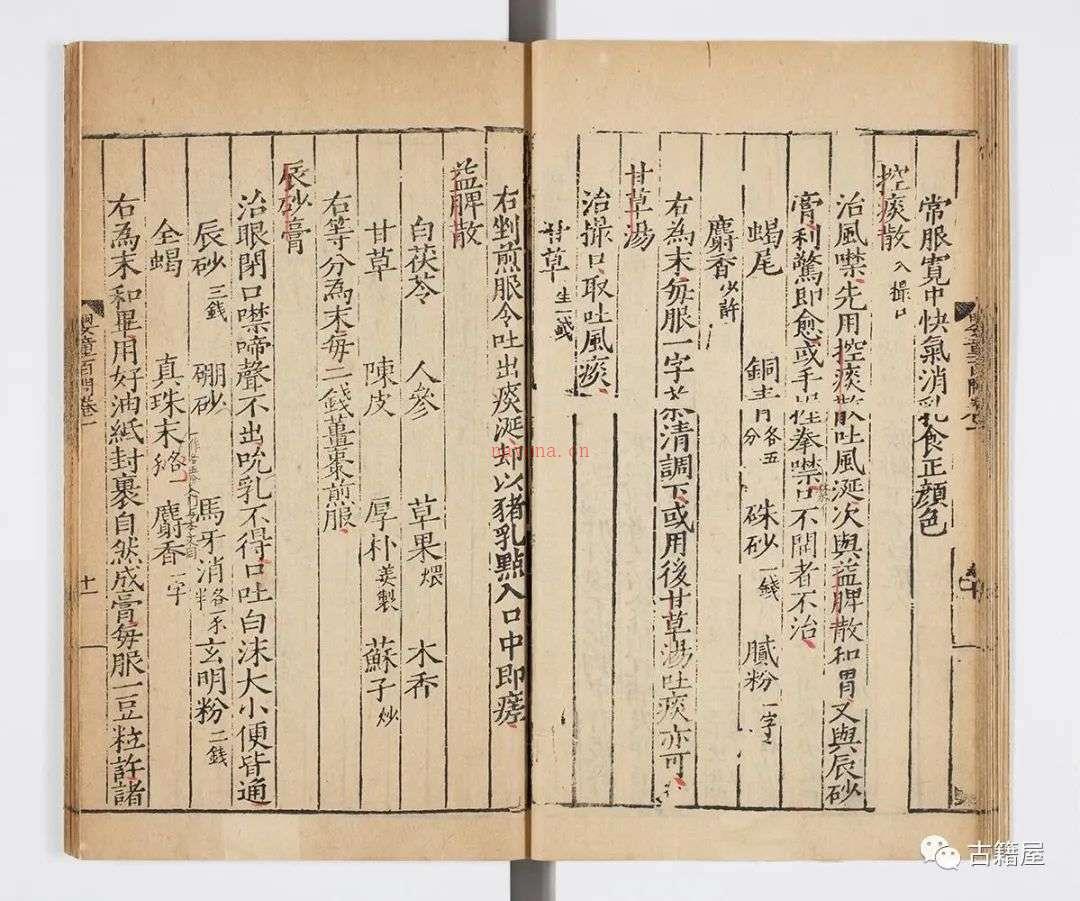 常服寬中快氣消乳食正顏色
控痰散 入撮口
治風噤先用控痰散吐風涎次與益脾散和胃又與辰砂
膏利驚即愈或手拳噤口不開者不治
蝎尾 銅青各五分 硃砂一錢 膩粉一字
麝香少許
右為末每服一字茶清調下或用後甘草湯吐痰亦可
甘草湯
治撮口取吐風痰
甘草 生一錢
右剉煎服令吐出痰涎却以猪乳點入口中即瘥
益脾散
白茯苓 人參 草果煨 木香
甘草 陳皮 厚朴姜製 蘇子炒
右等分為末每二錢薑棗煎服
辰砂膏
治眼閉口噤啼聲不出吮乳不得口吐白沫大小便皆通
辰砂三錢 硼砂 馬牙消各一 玄明粉二錢
全蝎 真珠末各一 麝香一字
右為末和畢用好油紙封裹自然成膏每服一豆粒許諸
童百問卷一
十一
nayona.cn
古籍屋